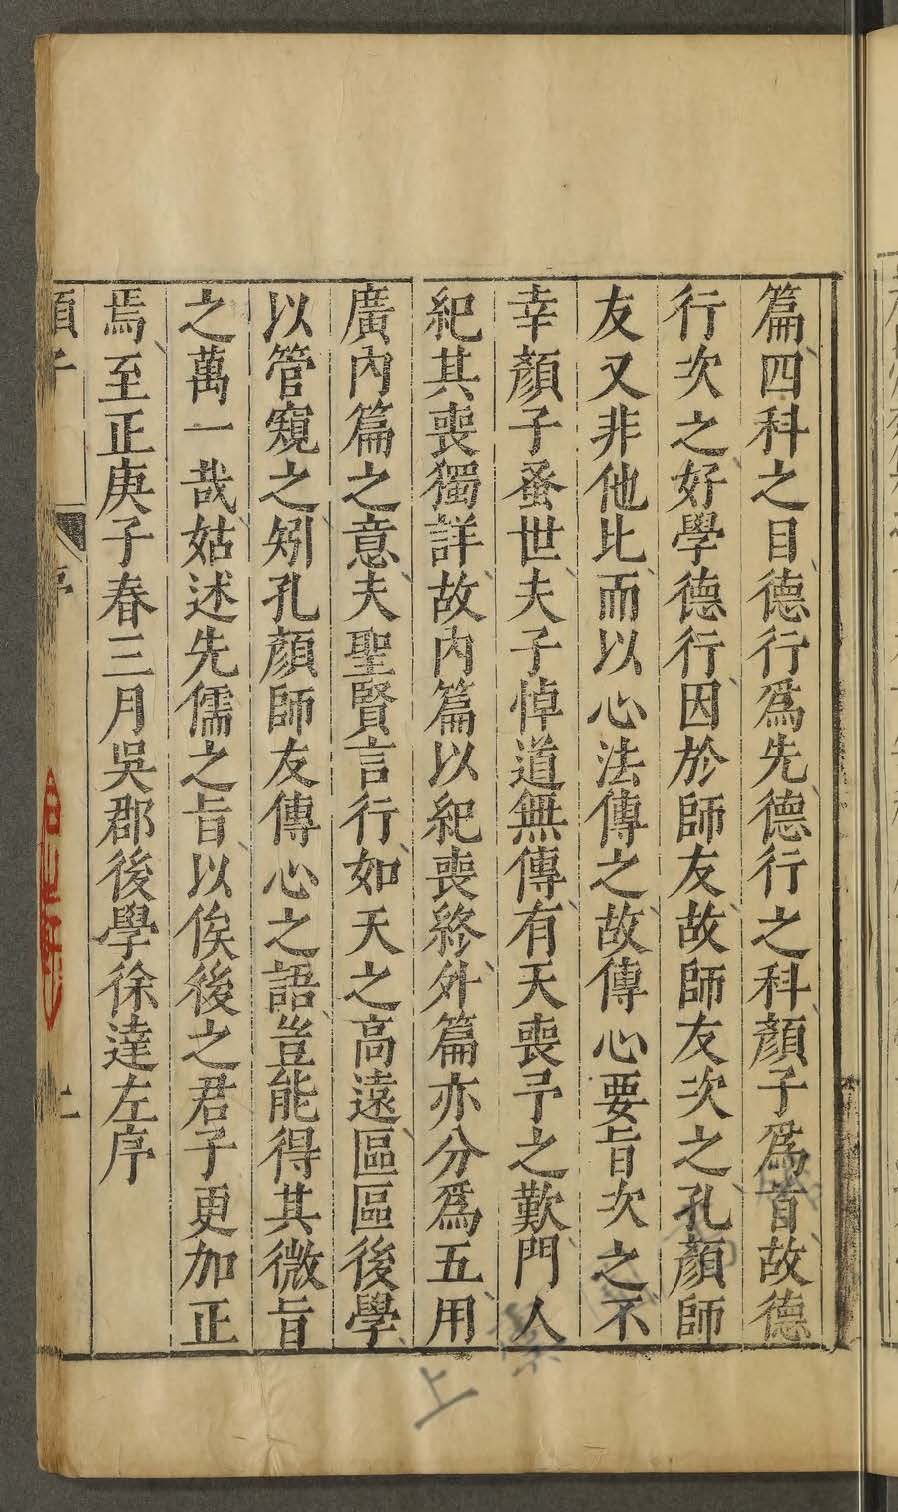 篇四科之目德行爲先德行之科顏子爲首故德
行次之好學德行因於師友故師友次之孔顏師
友又非他比而以心法傳之故傳心要旨次之不
幸顏子蚤世夫子悼道無傳有天喪予之歎門人
紀其喪獨詳故內篇以紀喪終外篇亦分爲五用
廣內篇之意夫聖賢言行如天之高遠區區後學
以管窺之矧孔顏師友傳心之語豈能得其微旨
之萬一哉姑述先儒之旨以俟後之君子更加正
焉至正庚子春三月吳郡後學徐達左序
上